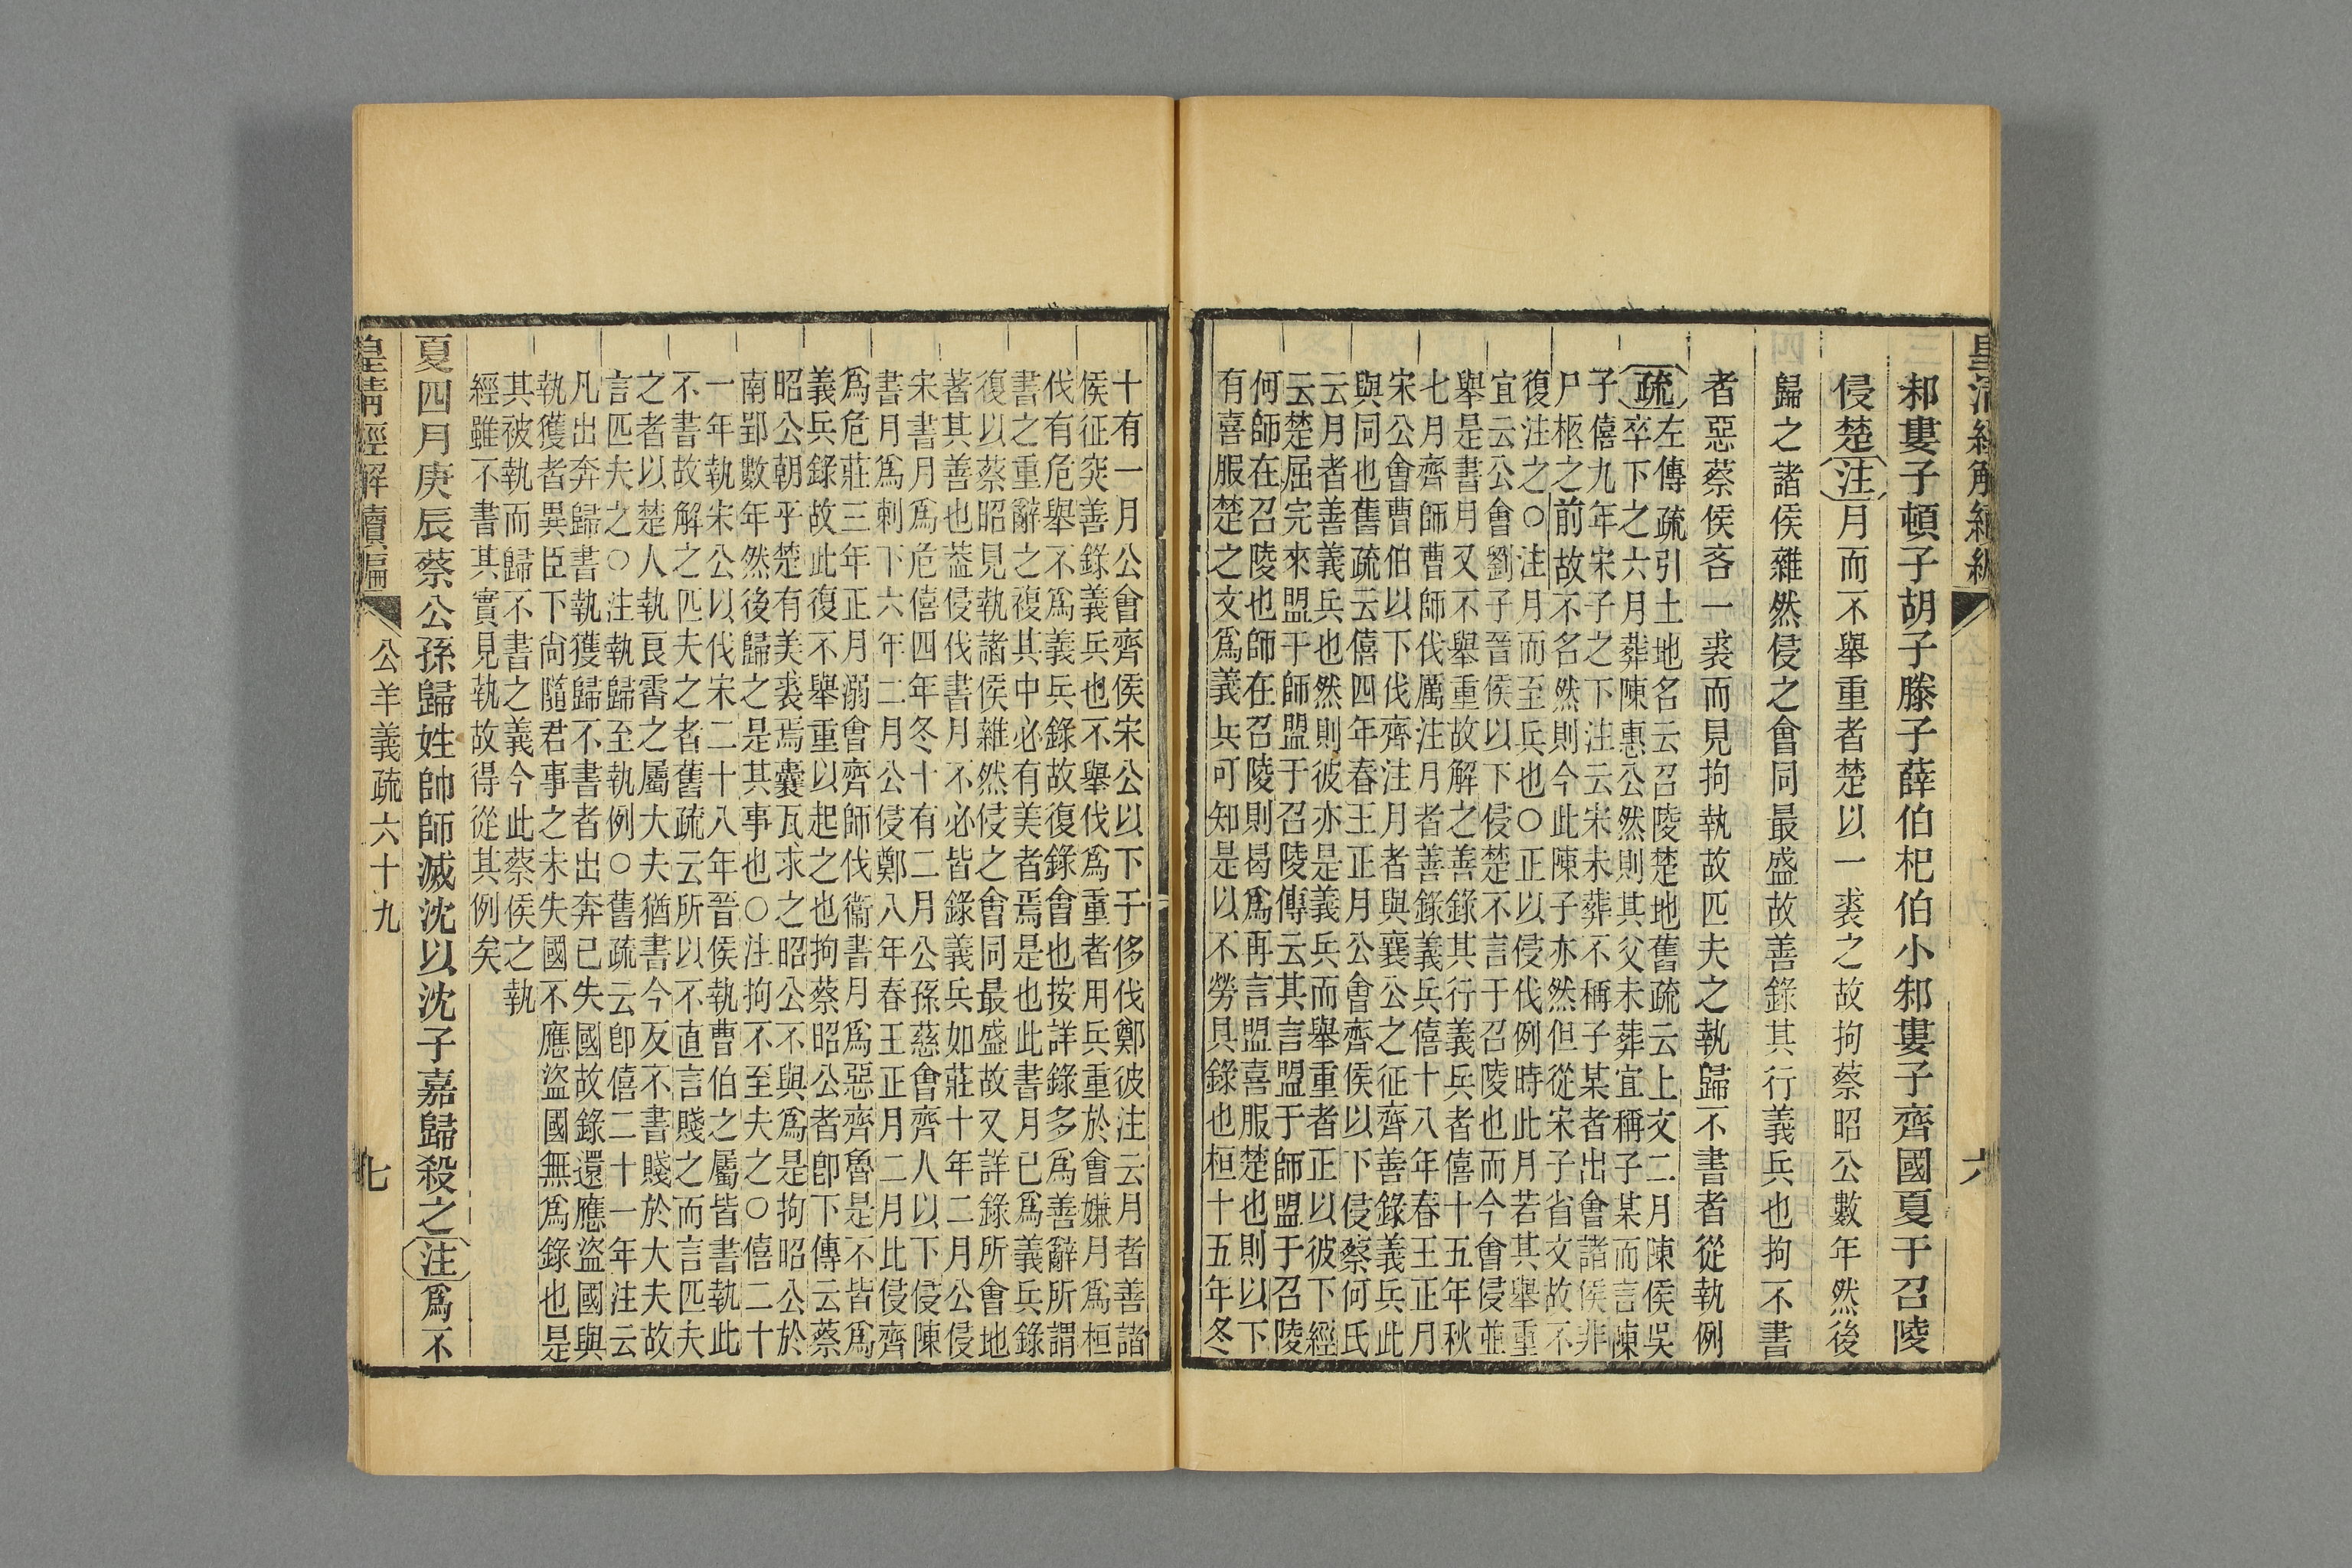 皇清經解續編 六
邾婁子頓子胡子滕子薛伯杞伯小邾婁子齊國夏于召陵
侵楚注月而不舉重者楚以一裘之故拘蔡昭公數年然後
歸之諸侯雜然侵之會同最盛故善錄其行義兵也拘不書
者惡蔡侯吝一裘而見拘執故匹夫之執歸不書者從執例
疏左傳疏引土地名云召陵楚地舊疏云上文二月陳侯吳
卒下之六月葬陳惠公然則其父未葬宜稱子某而言陳
子僖九年宋子之下注云宋未葬不稱子某者出會諸侯非
尸柩之前故不名然則今此陳子亦然但從宋子省文故不
復注之○注月而至兵也○正以侵伐例時此月若其舉重
宜云公會劉子晉侯以下侵楚不言于召陵也而今會侵並
舉是書月又不舉重故解之善錄其行義兵者僖十五年秋
七月齊師曹師伐厲注月者善錄義兵僖十八年春王正月
宋公會曹伯以下伐齊注月者與襄公之征齊善錄義兵此
與同也舊疏云僖四年春王正月公會齊侯以下侵蔡何氏
云月者善義兵也然則彼亦是義兵而舉重者正以彼下經
云楚屈完來盟于師盟于召陵傳云其言盟于師盟于召陵
何師在召陵也師在召陵則曷爲再言盟喜服楚也則以下
有喜服楚之文爲義兵可知是以不勞具錄也桓十五年冬
十有一月公會齊侯宋公以下于侈伐鄭彼注云月者善諸
侯征突善錄義兵也不舉伐爲重者用兵重於會嫌月爲桓
伐有危舉不爲義兵錄故復錄會也按詳錄多爲善辭所謂
書之重辭之複其中必有美者焉是也此書月已爲義兵錄
復以蔡昭見執諸侯雜然侵之會同最盛故又詳錄所會地
著其善也葢侵伐書月不必皆錄義兵如莊十年二月公侵
宋書月爲危僖四年冬十有二月公孫慈會齊人以下侵陳
書月爲刺下六年二月公侵鄭八年春王正月二月此侵齊
爲危莊三年正月溺會齊師伐衞書月爲惡齊魯是不皆爲
義兵錄故此復不舉重以起之也拘蔡昭公者卽下傳云蔡
昭公朝乎楚有美裘焉囊瓦求之昭公不與爲是拘昭公於
南郢數年然後歸之是其事也○注拘不至夫之○僖二十
一年執宋公以伐宋二十八年晉侯執曹伯之屬皆書執此
不書故解之匹夫之者舊疏云所以不直言賤之而言匹夫
之者以楚人執良霄之屬大夫猶書今反不書賤於大夫故
言匹夫之○注執歸至執例○舊疏云卽僖二十一年注云
凡出奔歸書執獲歸不書者出奔已失國故錄還應盜國與
執獲者異臣下尙隨君事之未失國不應盜國無爲錄也是
其被執而歸不書之義今此蔡侯之執
經雖不書其實見執故得從其例矣
夏四月庚辰蔡公孫歸姓帥師滅沈以沈子嘉歸殺之注爲不
皇清經解續編 公羊義疏六十九 七